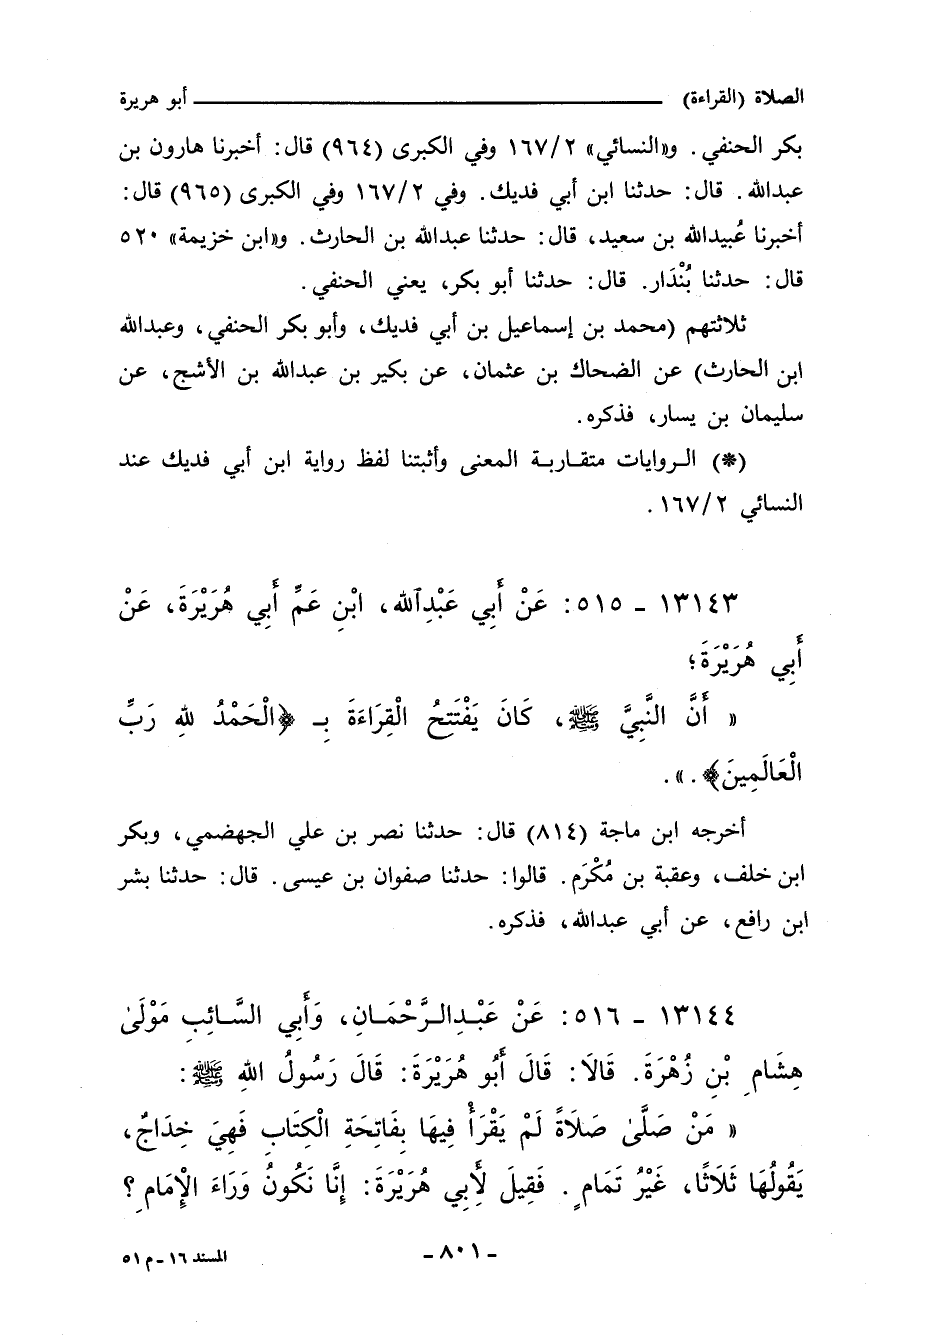 الصلاة (القراءة) ــــــــــ أبو هريرة
بكر الحنفي. و«النسائي» ١٦٧/٢ وفي الكبرى (٩٦٤) قال: أخبرنا هارون بن
عبدالله. قال: حدثنا ابن أبي فديك. وفي ١٦٧/٢ وفي الكبرى (٩٦٥) قال:
أخبرنا عُبيدالله بن سعيد، قال: حدثنا عبدالله بن الحارث. و«ابن خزيمة» ٥٢٠
قال: حدثنا بُنْدَار. قال: حدثنا أبو بكر، يعني الحنفي.
ثلاثتهم (محمد بن إسماعيل بن أبي فديك، وأبو بكر الحنفي، وعبدالله
ابن الحارث) عن الضحاك بن عثمان، عن بكير بن عبدالله بن الأشج، عن
سليمان بن يسار، فذكره.
(*) الروايات متقاربة المعنى وأثبتنا لفظ رواية ابن أبي فديك عند
النسائي ١٦٧/٢.
١٣١٤٣ - ٥١٥: عَنْ أَبِي عَبْدِاللهِ، ابْنِ عَمِّ أَبِي هُرَيْرَةَ، عَنْ
أَبِي هُرَيْرَةَ؛
« أَنَّ النَّبِيَّ ﷺ، كَانَ يَفْتَتِحُ الْقِرَاءَةَ بِـ ﴿الْحَمْدُ لِلهِ رَبِّ
الْعَالَمِينَ﴾.».
أخرجه ابن ماجة (٨١٤) قال: حدثنا نصر بن علي الجهضمي، وبكر
ابن خلف، وعقبة بن مُكْرَم. قالوا: حدثنا صفوان بن عيسى. قال: حدثنا بشر
ابن رافع، عن أبي عبدالله، فذكره.
١٣١٤٤ - ٥١٦: عَنْ عَبْدِالرَّحْمَانِ، وَأَبِي السَّائِبِ مَوْلَىٰ
هِشَامِ بْنِ زُهْرَةَ. قَالَا: قَالَ أَبُو هُرَيْرَةَ: قَالَ رَسُولُ اللهِ ﷺ:
« مَنْ صَلَّىٰ صَلَاةً لَمْ يَقْرَأْ فِيهَا بِفَاتِحَةِ الْكِتَابِ فَهِيَ خِدَاجٌ،
يَقُولُهَا ثَلَاثًا، غَيْرُ تَمَامٍ. فَقِيلَ لِأَبِي هُرَيْرَةَ: إِنَّا نَكُونُ وَرَاءَ الْإِمَامِ؟
- ٨٠١ -
المسند ١٦ - م ٥١